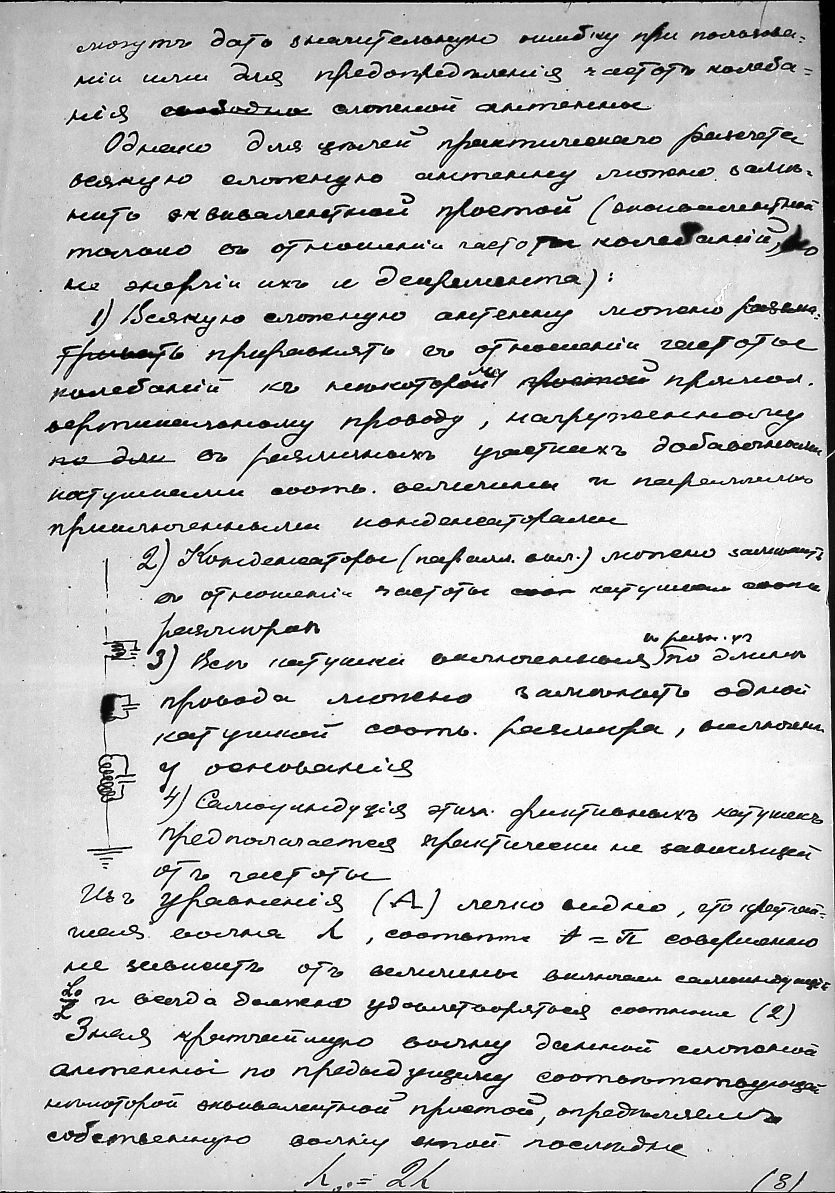 могутъ дать значительную ошибку при пользова-
ніи ими для предопредѣленія частоты колеба-
нія свободна сложной антенны
Однако для цѣлей практическаго расчета
всякую сложную антенну можно замѣ-
нить эквивалентной простой (эквивалентной
только въ отношеніи частоты колебаній, но
не энергіи ихъ и декремента):
1) Всякую сложную антенну можно разсма-
тривать приравнять въ отношеніи частоты
колебаній къ нѣкоторому простой прямол.
вертикальному проводу, нагруженному
по дли въ различныхъ участкахъ добавочными
катушками соотв. величины и параллельно
приключенными конденсаторами
2) Конденсаторы (паралл. вкл.) можно замѣнить
въ отношеніи частоты соот катушкам соотв
размѣров
3) Всѣ катушки включенныя по длинѣ
провода можно замѣнить одной
катушкой соотв. размѣра, включен
у основанія
4) Самоиндукція этих фиктивныхъ катушекъ
предполагается практически не зависящей
отъ частоты
Изъ уравненія (А) легко видно, что кратчай-
шая волна λ, соотвѣтств = π совершенно
не зависитъ отъ величины включен самоиндукціи
L₀/L и всегда должна удовлетворяться соотнош (2)
Зная кратчайшую волну данной сложной
антенны по предыдущему соотвѣтствующей
нѣкоторой эквивалентной простой, опредѣляемъ
собственную волну этой послѣдне
λ₀ = 2λ (3)